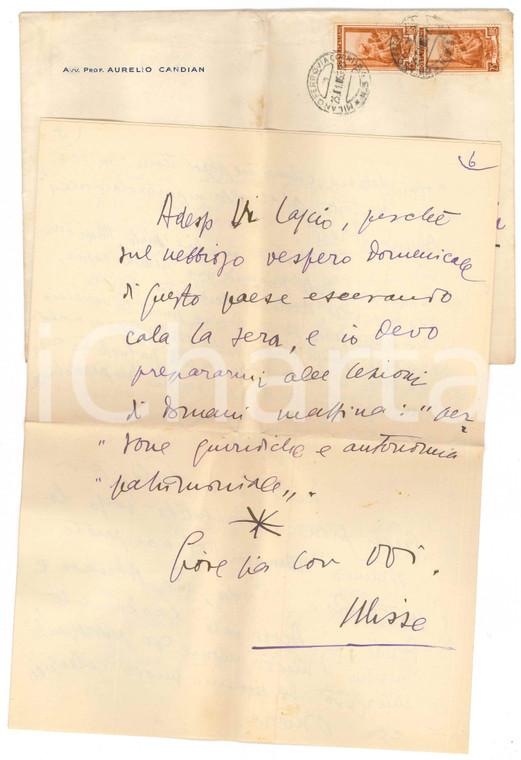 Avv. Prof. AURELIO CANDIAN
6
Adesso Vi lascio, perché
sul nebbioso vespero domenicale
di questo paese esecrando
cala la sera, e io devo
prepararmi alle lezioni
di domani mattina: "per-
"sone giuridiche e autonomia
"patrimoniale„.
Giove sia con Voi.
Ulisse
iCharta